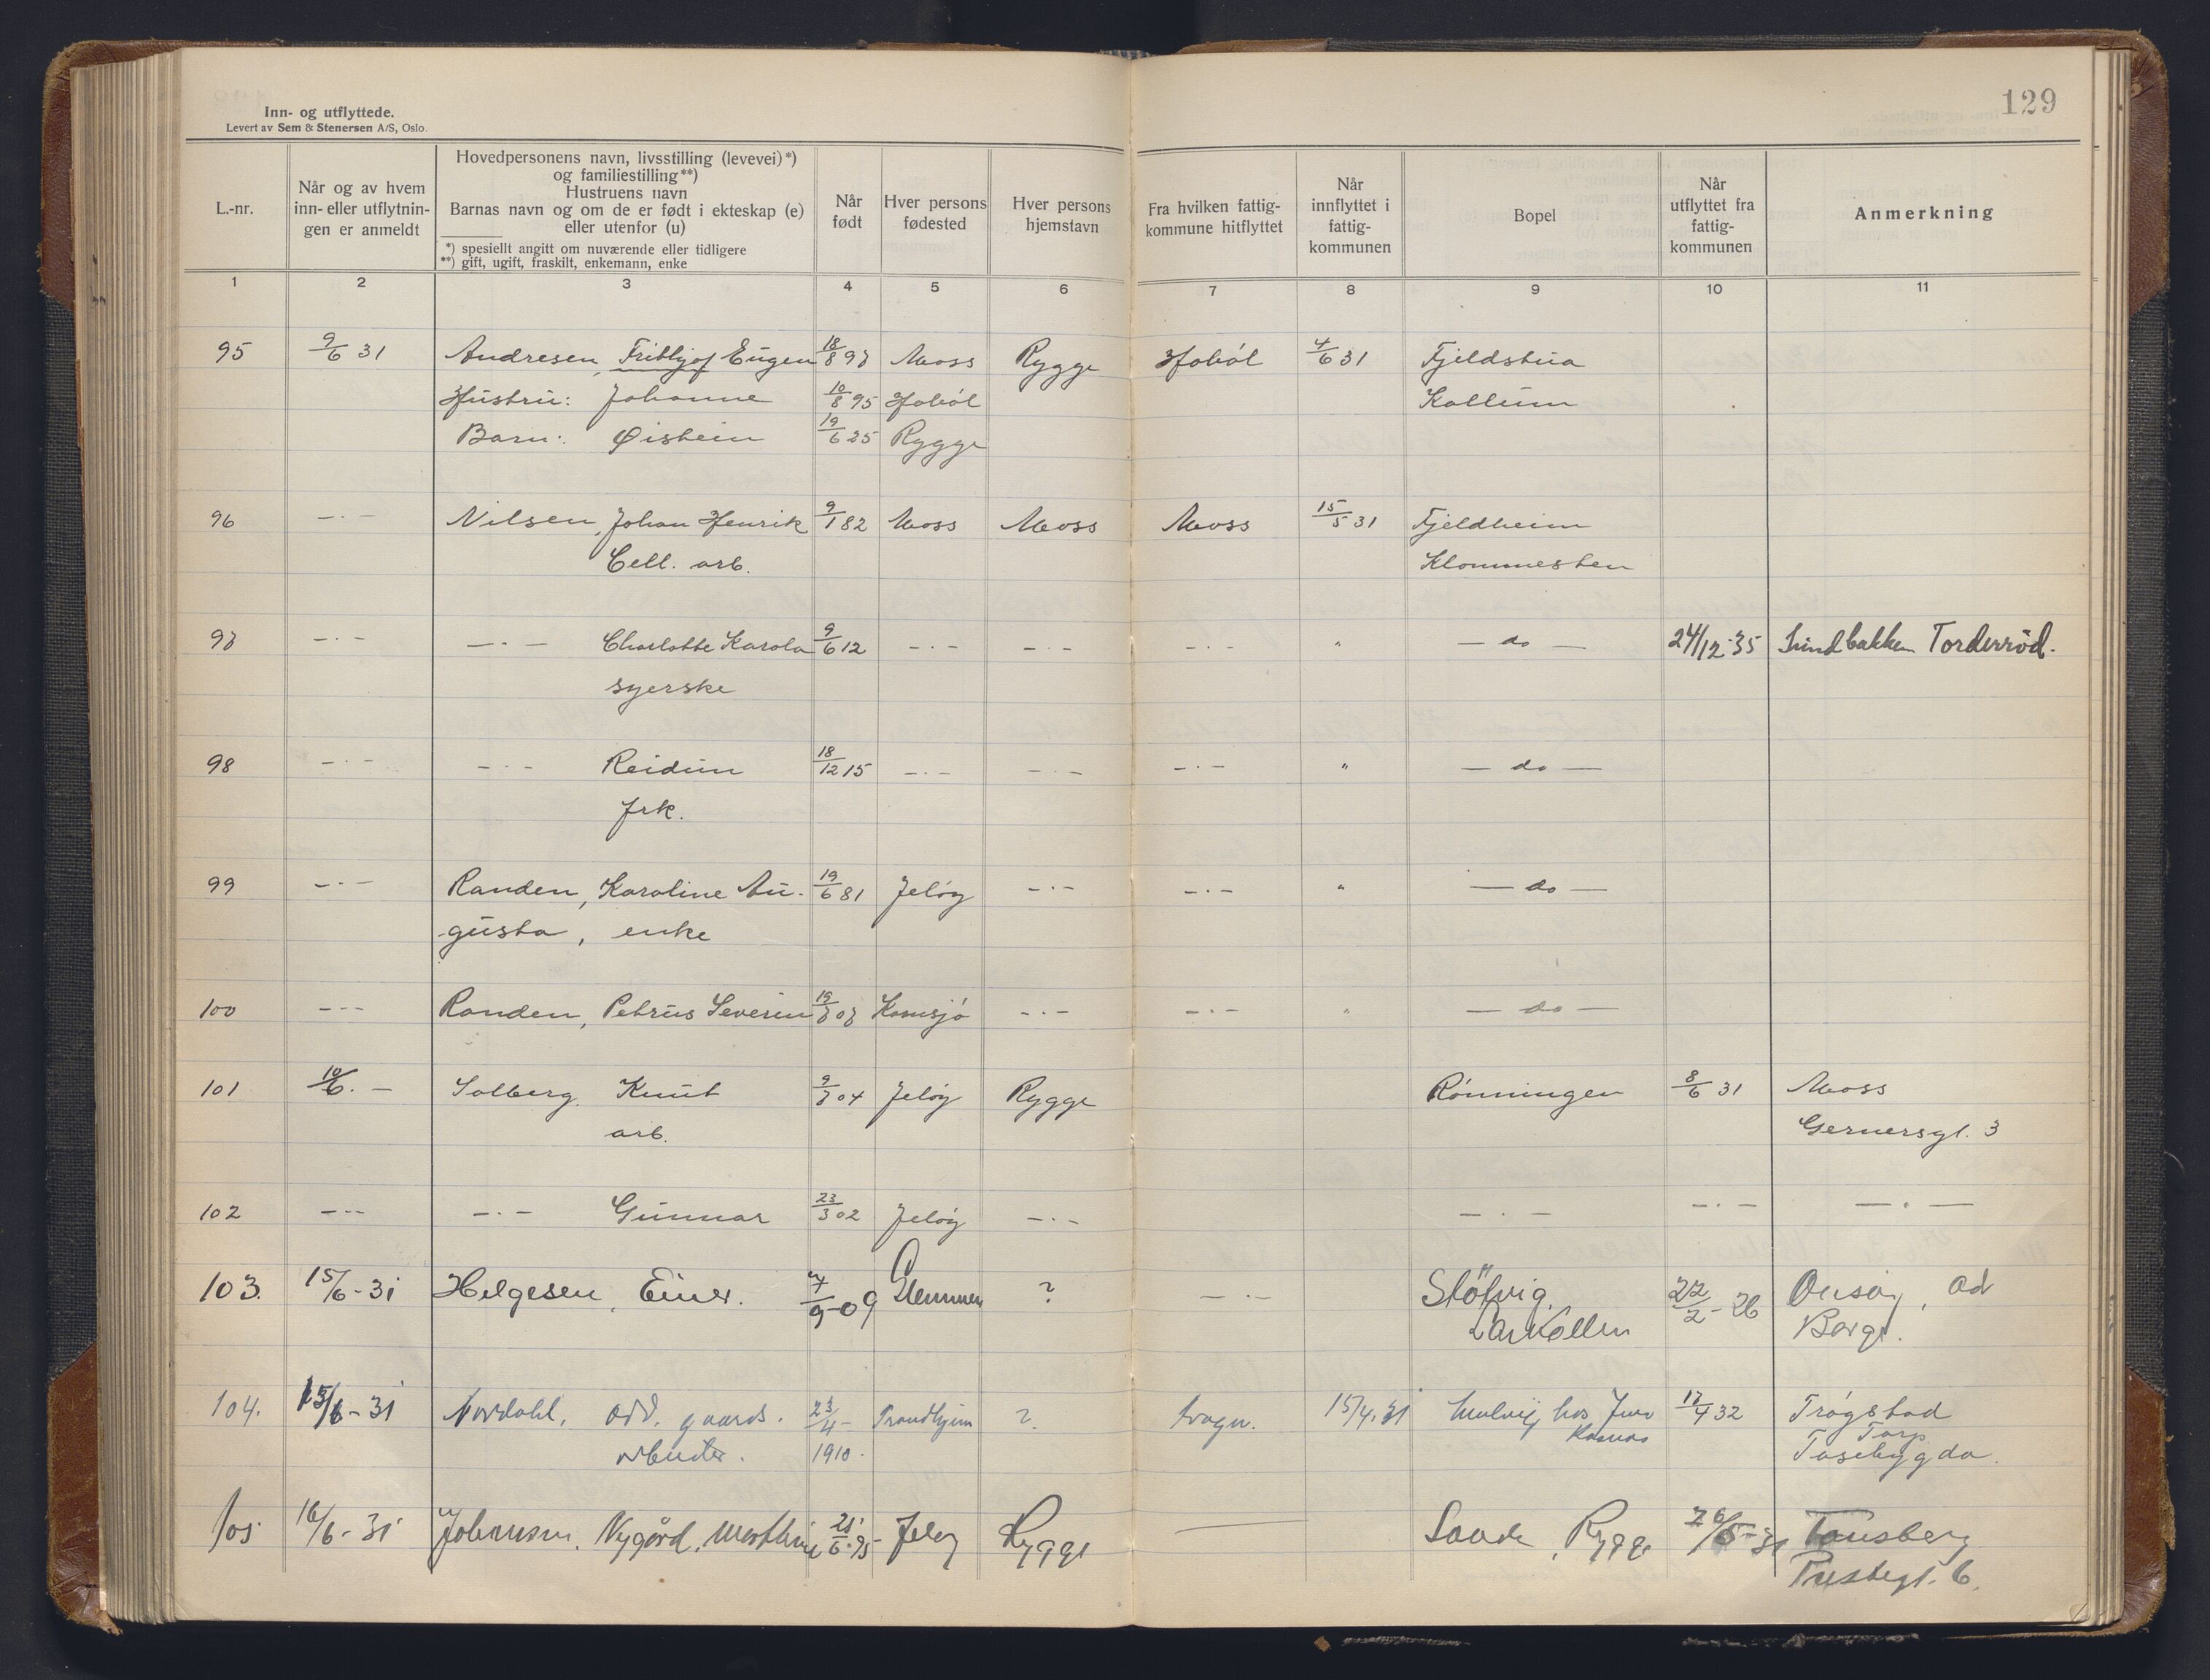 129
Inn- og utflyttede.
Levert av Sem & Stenersen A/S, Oslo.
L.-nr.
Når og av hvem inn- eller utflytnin-gen er anmeldt
Hovedpersonens navn, livsstilling (levevei)*)
og familiestilling**)
Hustruens navn
Barnas navn og om de er født i ekteskap (e)
eller utenfor (u)
*) spesiellt angitt om nuværende eller tidligere
**) gift, ugift, fraskilt, enkemann, enke
Når født
Hver persons fødested
Hver persons hjemstavn
Fra hvilken fattig-kommune hitflyttet
Når innflyttet i fattig-kommunen
Bopel
Når utflyttet fra fattig-kommunen
Anmerkning
1 2 3 4 5 6 7 8 9 10 11
95 9/6 31 Andresen, Frithjof Eugen 18/8 97 Moss Rygge Hobøl 4/6 31 Fjeldstua
Hustru: Johanne 10/8 95 Hobøl Kallum
Barn: Øistein 19/6 25 Rygge
96 -·- Nilsen, Johan Henrik 9/1 82 Moss Moss Moss 15/5 31 Fjeldheim
Cell. arb. Klommesten
97 -·- -·- Charlotte Karola 9/6 12 -·- -·- -·- " - do - 24/12-35 Lundbakken Torderrød.
syerske
98 -·- -·- Reidun 18/12 15 -·- -·- -·- " - do -
frk.
99 -·- Randen, Karoline Au- 19/6 81 Jeløy -·- -·- " - do -
gusta, enke
100 -·- Randen, Petrus Severin 19/7 07 -·- -·- " - do -
101 10/6. - Solberg, Knut 9/7 04 Jeløy Rygge Rønningen 8/6 31 Moss
arb. Gernersgt. 3
102 -·- -·- Gunnar 23/3 02 Jeløy -·- -·- -·- -·-
103. 15/6-31 Helgesen, Einer. 9-09 Glemmen ? -·- Støtvig, 22/2-26 Onsøy,
Larkollen
104. 15/6-31 Nordahl, Odd. gaards. 23/4- Trondhjem ? 15/4.31 hos 17/4 32 Trøgstad
arbeider. 1910. Torp
Båsebygda.
105 16/6-31 Johansen, Nygård, 21/6-95 Jeløy Rygge Rygge Tønsberg